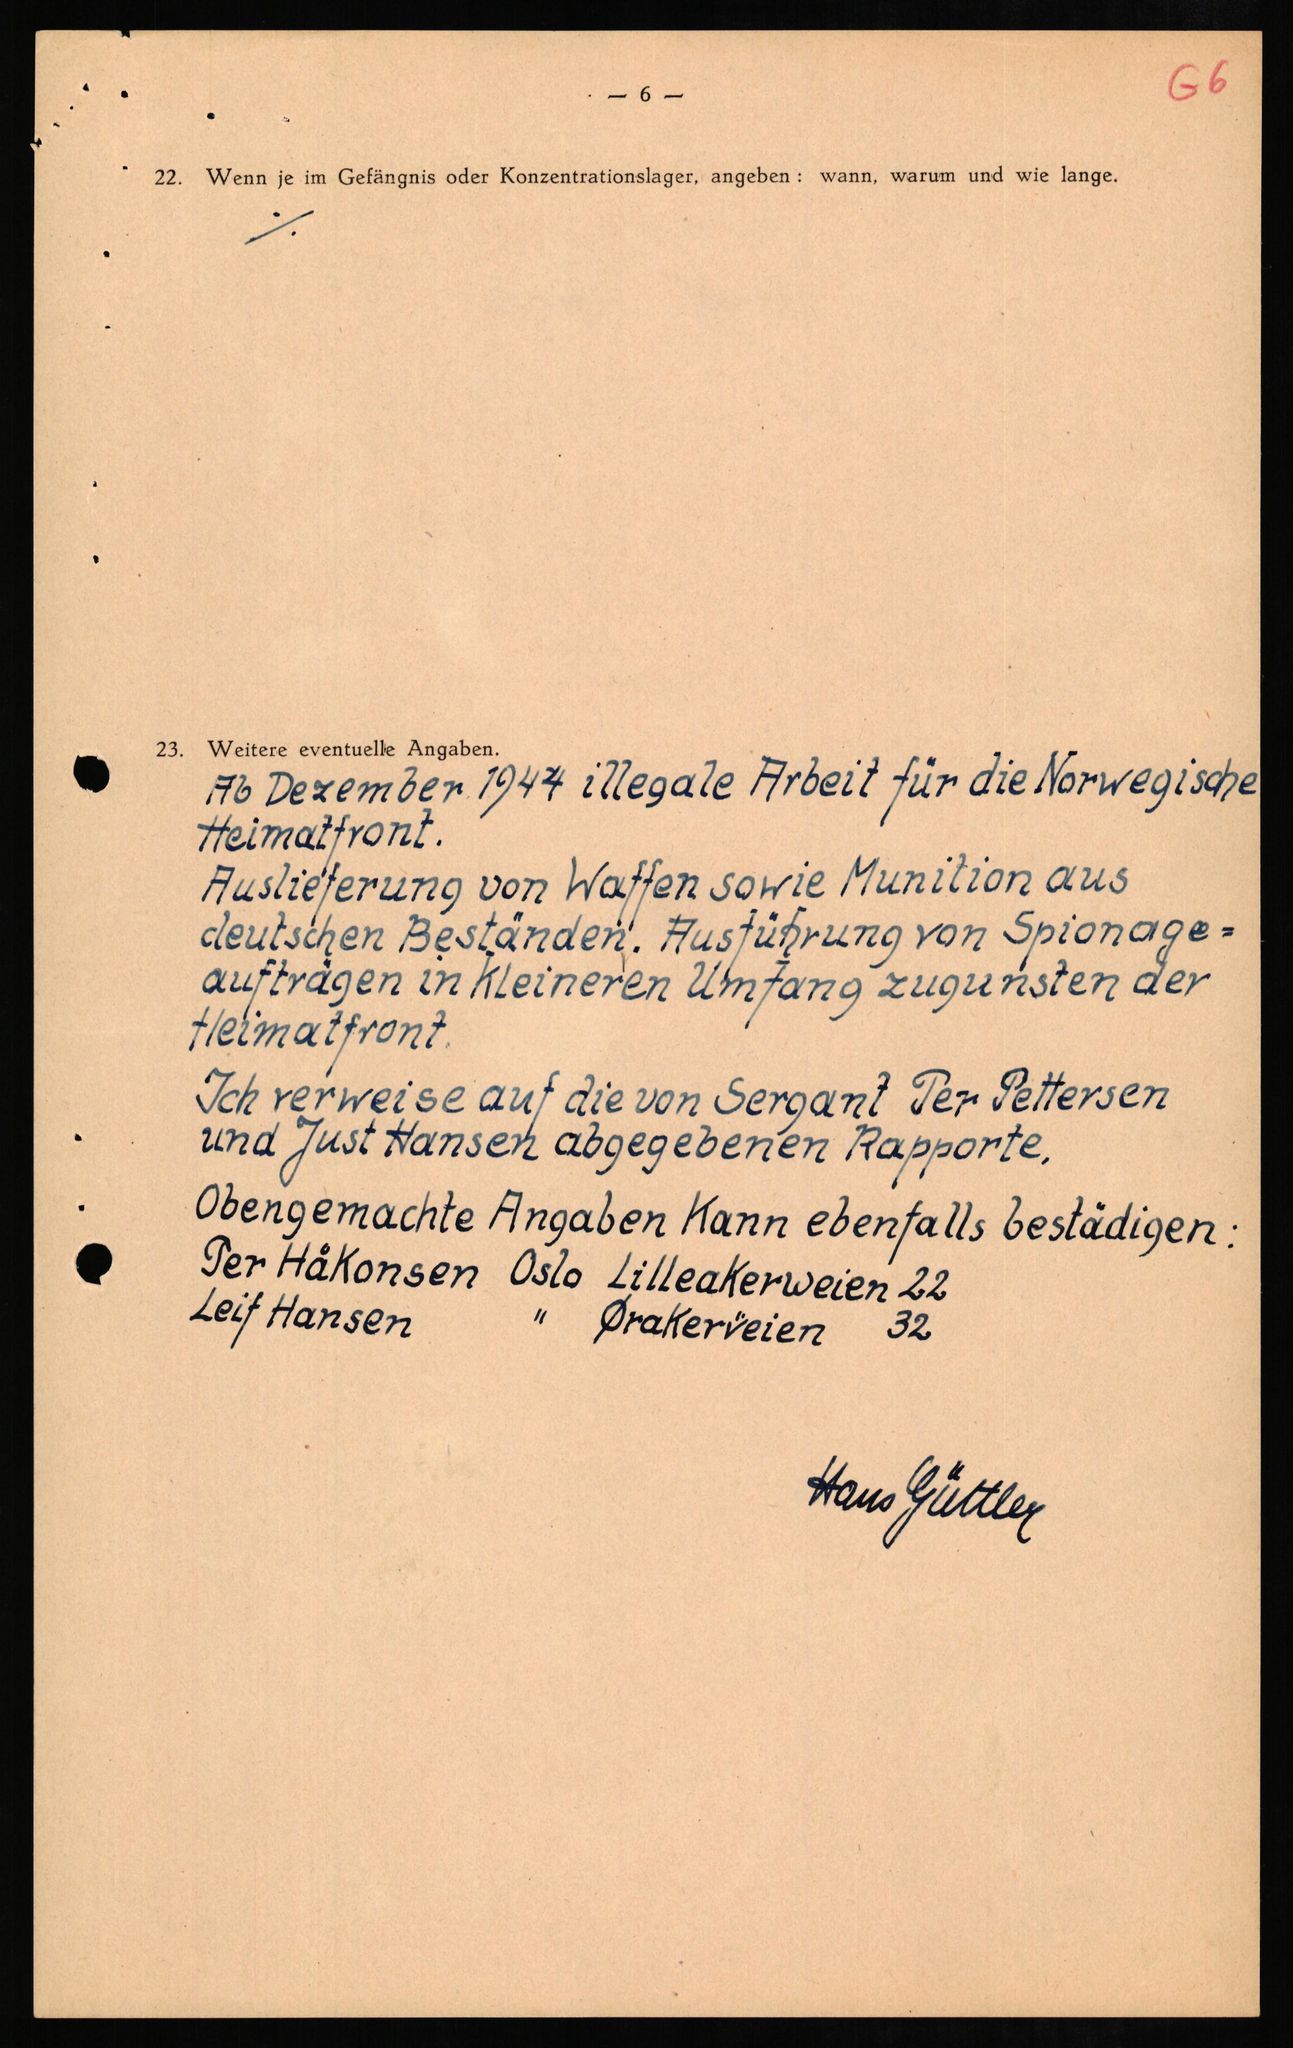 — 6 —
G6
22. Wenn je im Gefängnis oder Konzentrationslager, angeben: wann, warum und wie lange.
·/.
23. Weitere eventuelle Angaben.
Ab Dezember 1944 illegale Arbeit für die Norwegische
Heimatfront.
Auslieferung von Waffen sowie Munition aus
deutschen Beständen. Ausführung von Spionage=
aufträgen in kleineren Umfang zugunsten der
Heimatfront.
Ich verweise auf die von Sergant Per Pettersen
und Just Hansen abgegebenen Rapporte.
Obengemachte Angaben kann ebenfalls bestädigen:
Per Håkonsen Oslo Lilleakerweien 22
Leif Hansen " Ørakerveien 32
Hans Güttler